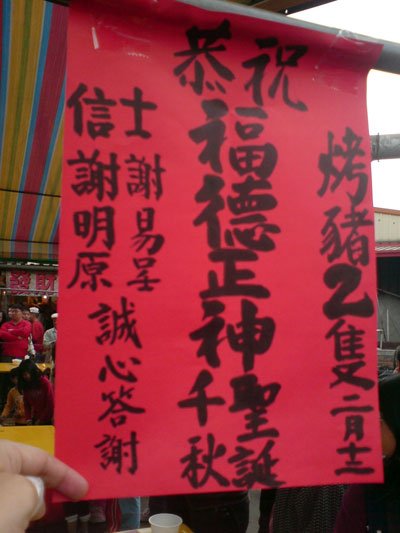 烤豬2隻 二月十二
恭祝
福德正神
聖誕
千秋
信士
謝易呈
謝明原
誠心答謝